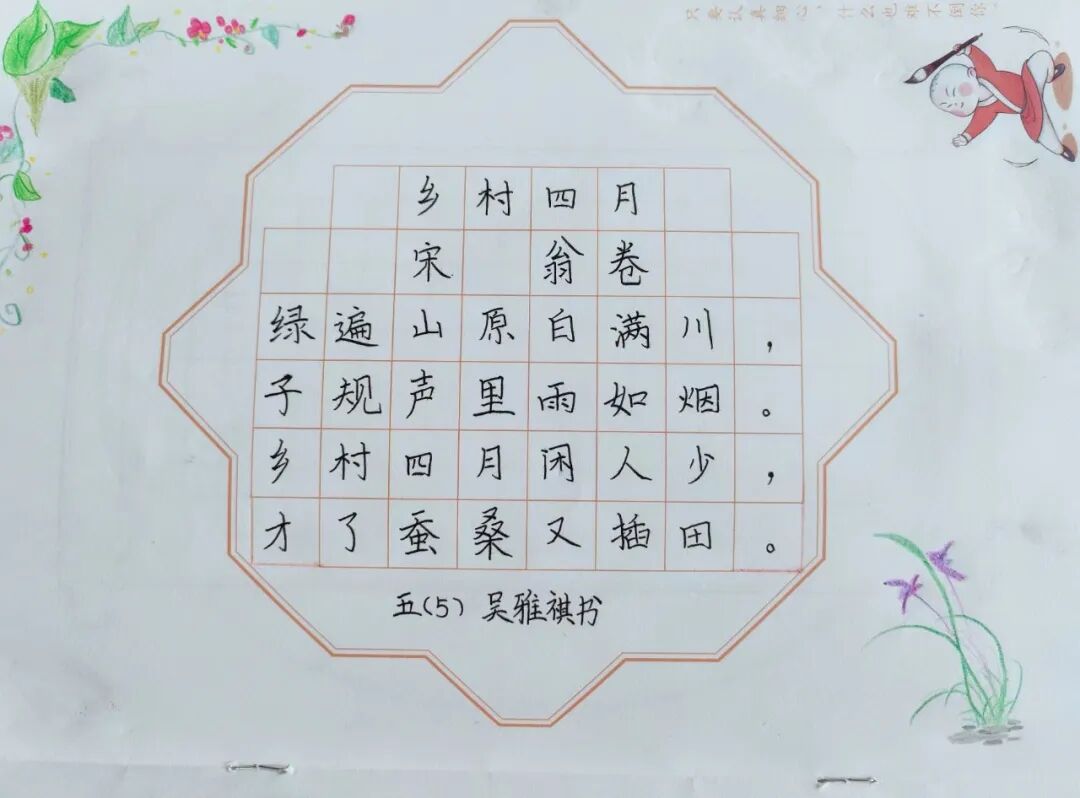 只要认真细心，什么也难不倒你。
乡村四月
宋 翁卷
绿遍山原白满川，
子规声里雨如烟。
乡村四月闲人少，
才了蚕桑又插田。
五(5) 吴雅祺书